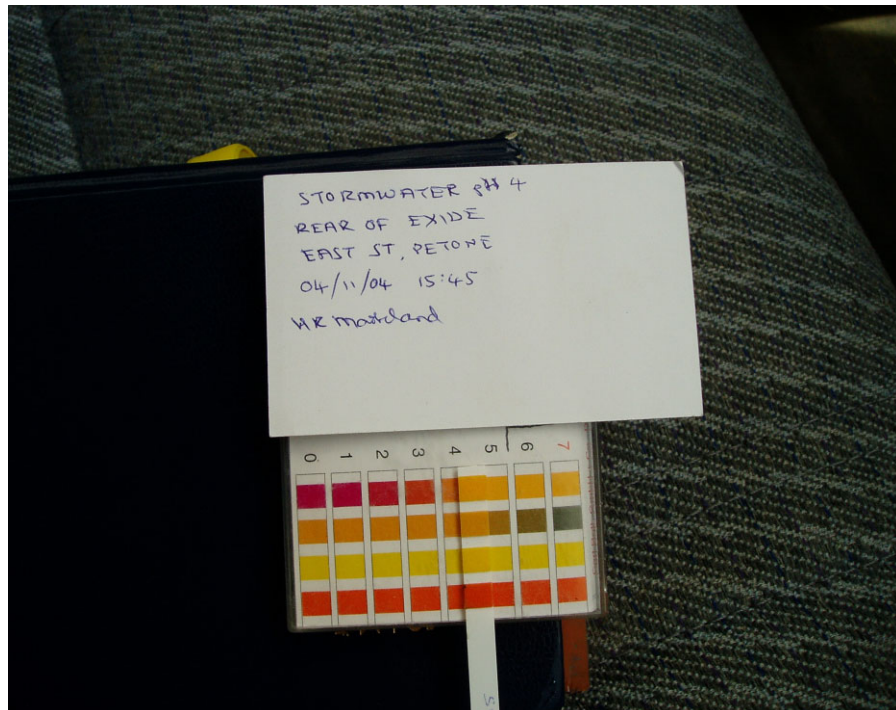 STORMWATER pH 4
REAR OF EXIDE
EAST ST, PETONE
04/11/04 15:45
HR
0 1 2 3 4 5 6 7
S